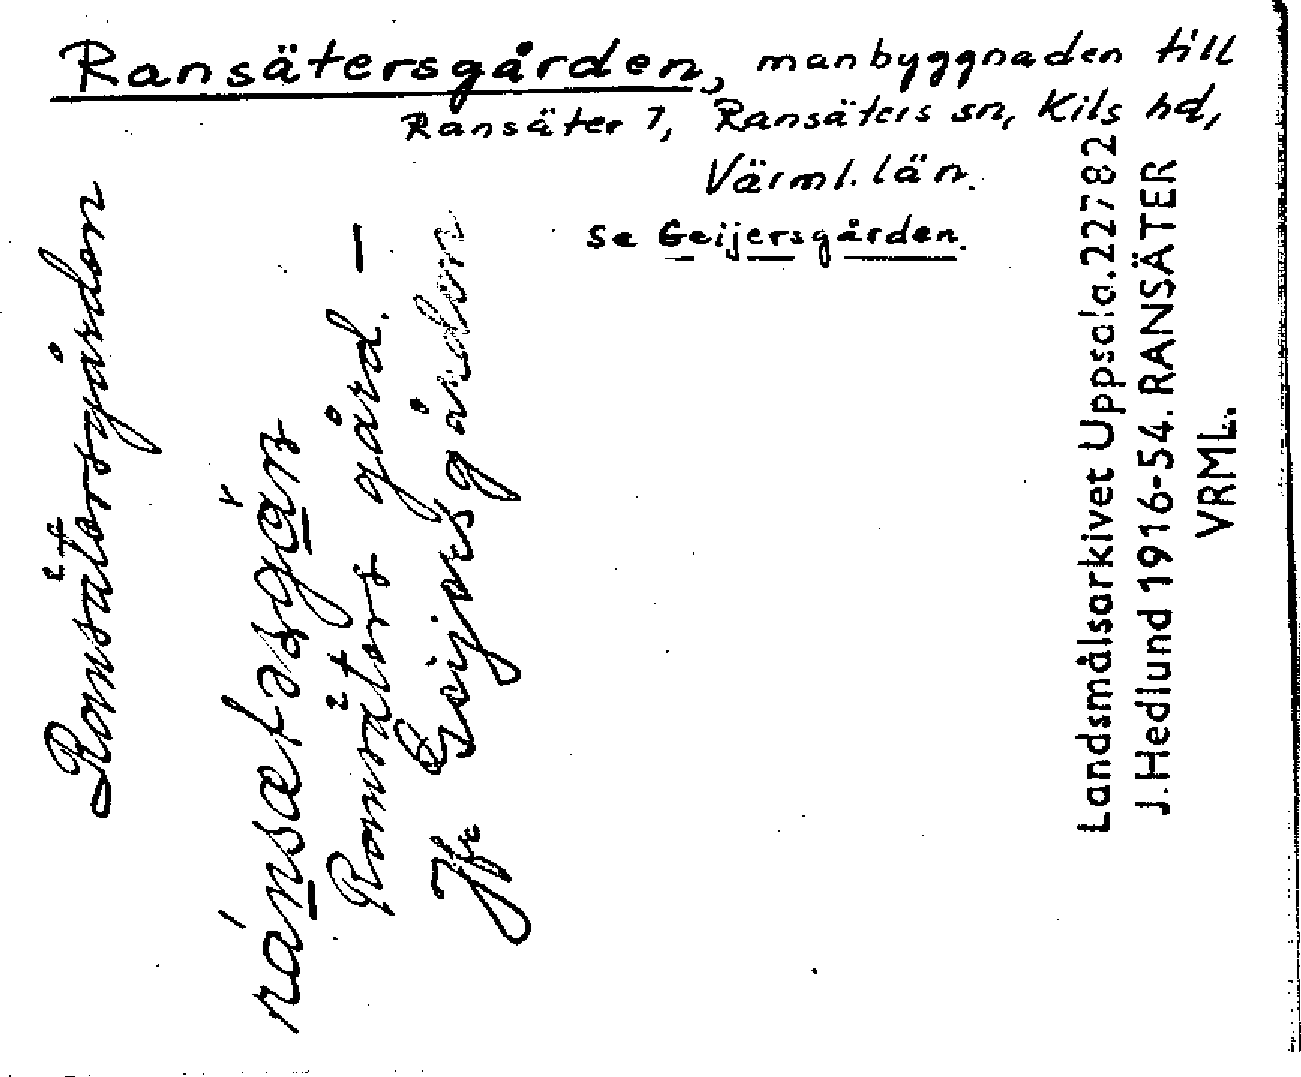 Ransätersgården, manbyggnaden till
Ransäter 7, Ransäters sn, Kils hd,
Värml. län.
se Geijersgården.
Ransätersgården
ránsætəsgàn
Ransäters gård. —
Jfr Geijersgården
Landsmålsarkivet Uppsala. 22782
J. Hedlund 1916-54. RANSÄTER
VRML.